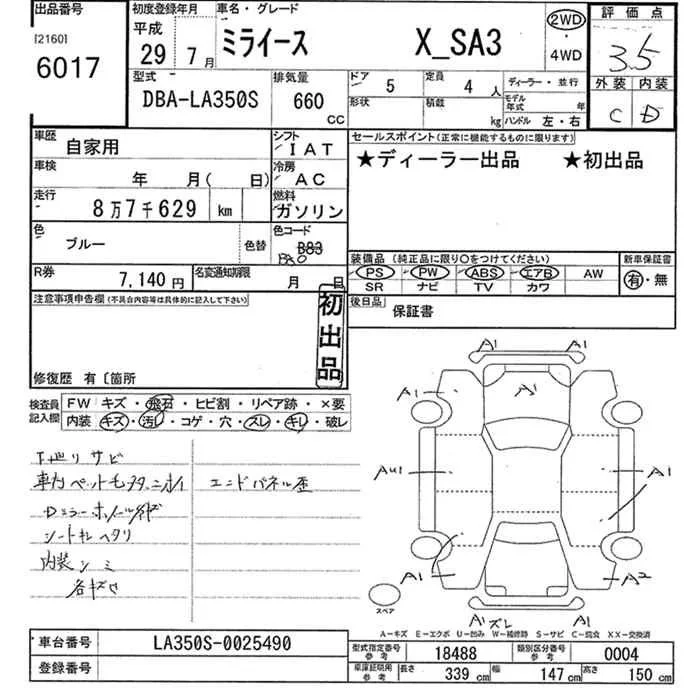 出品番号
[2160]
6017
初度登録年月
平成
29年 7月
車名・グレード
ミライース X_SA3
2WD
・
4WD
評価点
3.5
外装 内装
C D
型式
DBA-LA350S
排気量
660
CC
ドア 5
定員 4 人
形状
積載 kg
ディーラー・並行
モデル年式 年
ハンドル 左・右
車歴 自家用
シフト IAT
車検 年 月( 日)
冷房 AC
走行 8万7千629 km
燃料 ガソリン
色 ブルー 色替
色コード B83
R券 7,140円
名変通知期限 月 日
セールスポイント(正常に機能するものに限ります)
★ディーラー出品 ★初出品
装備品(純正品に限り〇をつけてください)
PS PW ABS エアB AW
SR ナビ TV カワ
新車保証書
有・無
後日品 保証書
注意事項申告欄(不具合内容等は具体的に記入して下さい)
初出品
修復歴 有〔箇所
検査員記入欄
FW キズ・飛石・ヒビ割・リペア跡・×要
内装 キズ・汚レ・コゲ・穴・スレ・キレ・破レ
下廻リサビ
エンドパネル歪
シートキレヘタリ
内装シミ
A1 A1
A1
A1 A1
AU1 A1
A1 A2
A1 ズレ A1
スペア
A-キズ E-エクボ U-凹み W-補修跡 S-サビ C-腐食 XX-交換済
車台番号 LA350S-0025490
登録番号
型式指定番号 参考 18488
類別区分番号 参考 0004
車庫証明用 参考 長さ 339 cm 幅 147 cm 高さ 150 cm